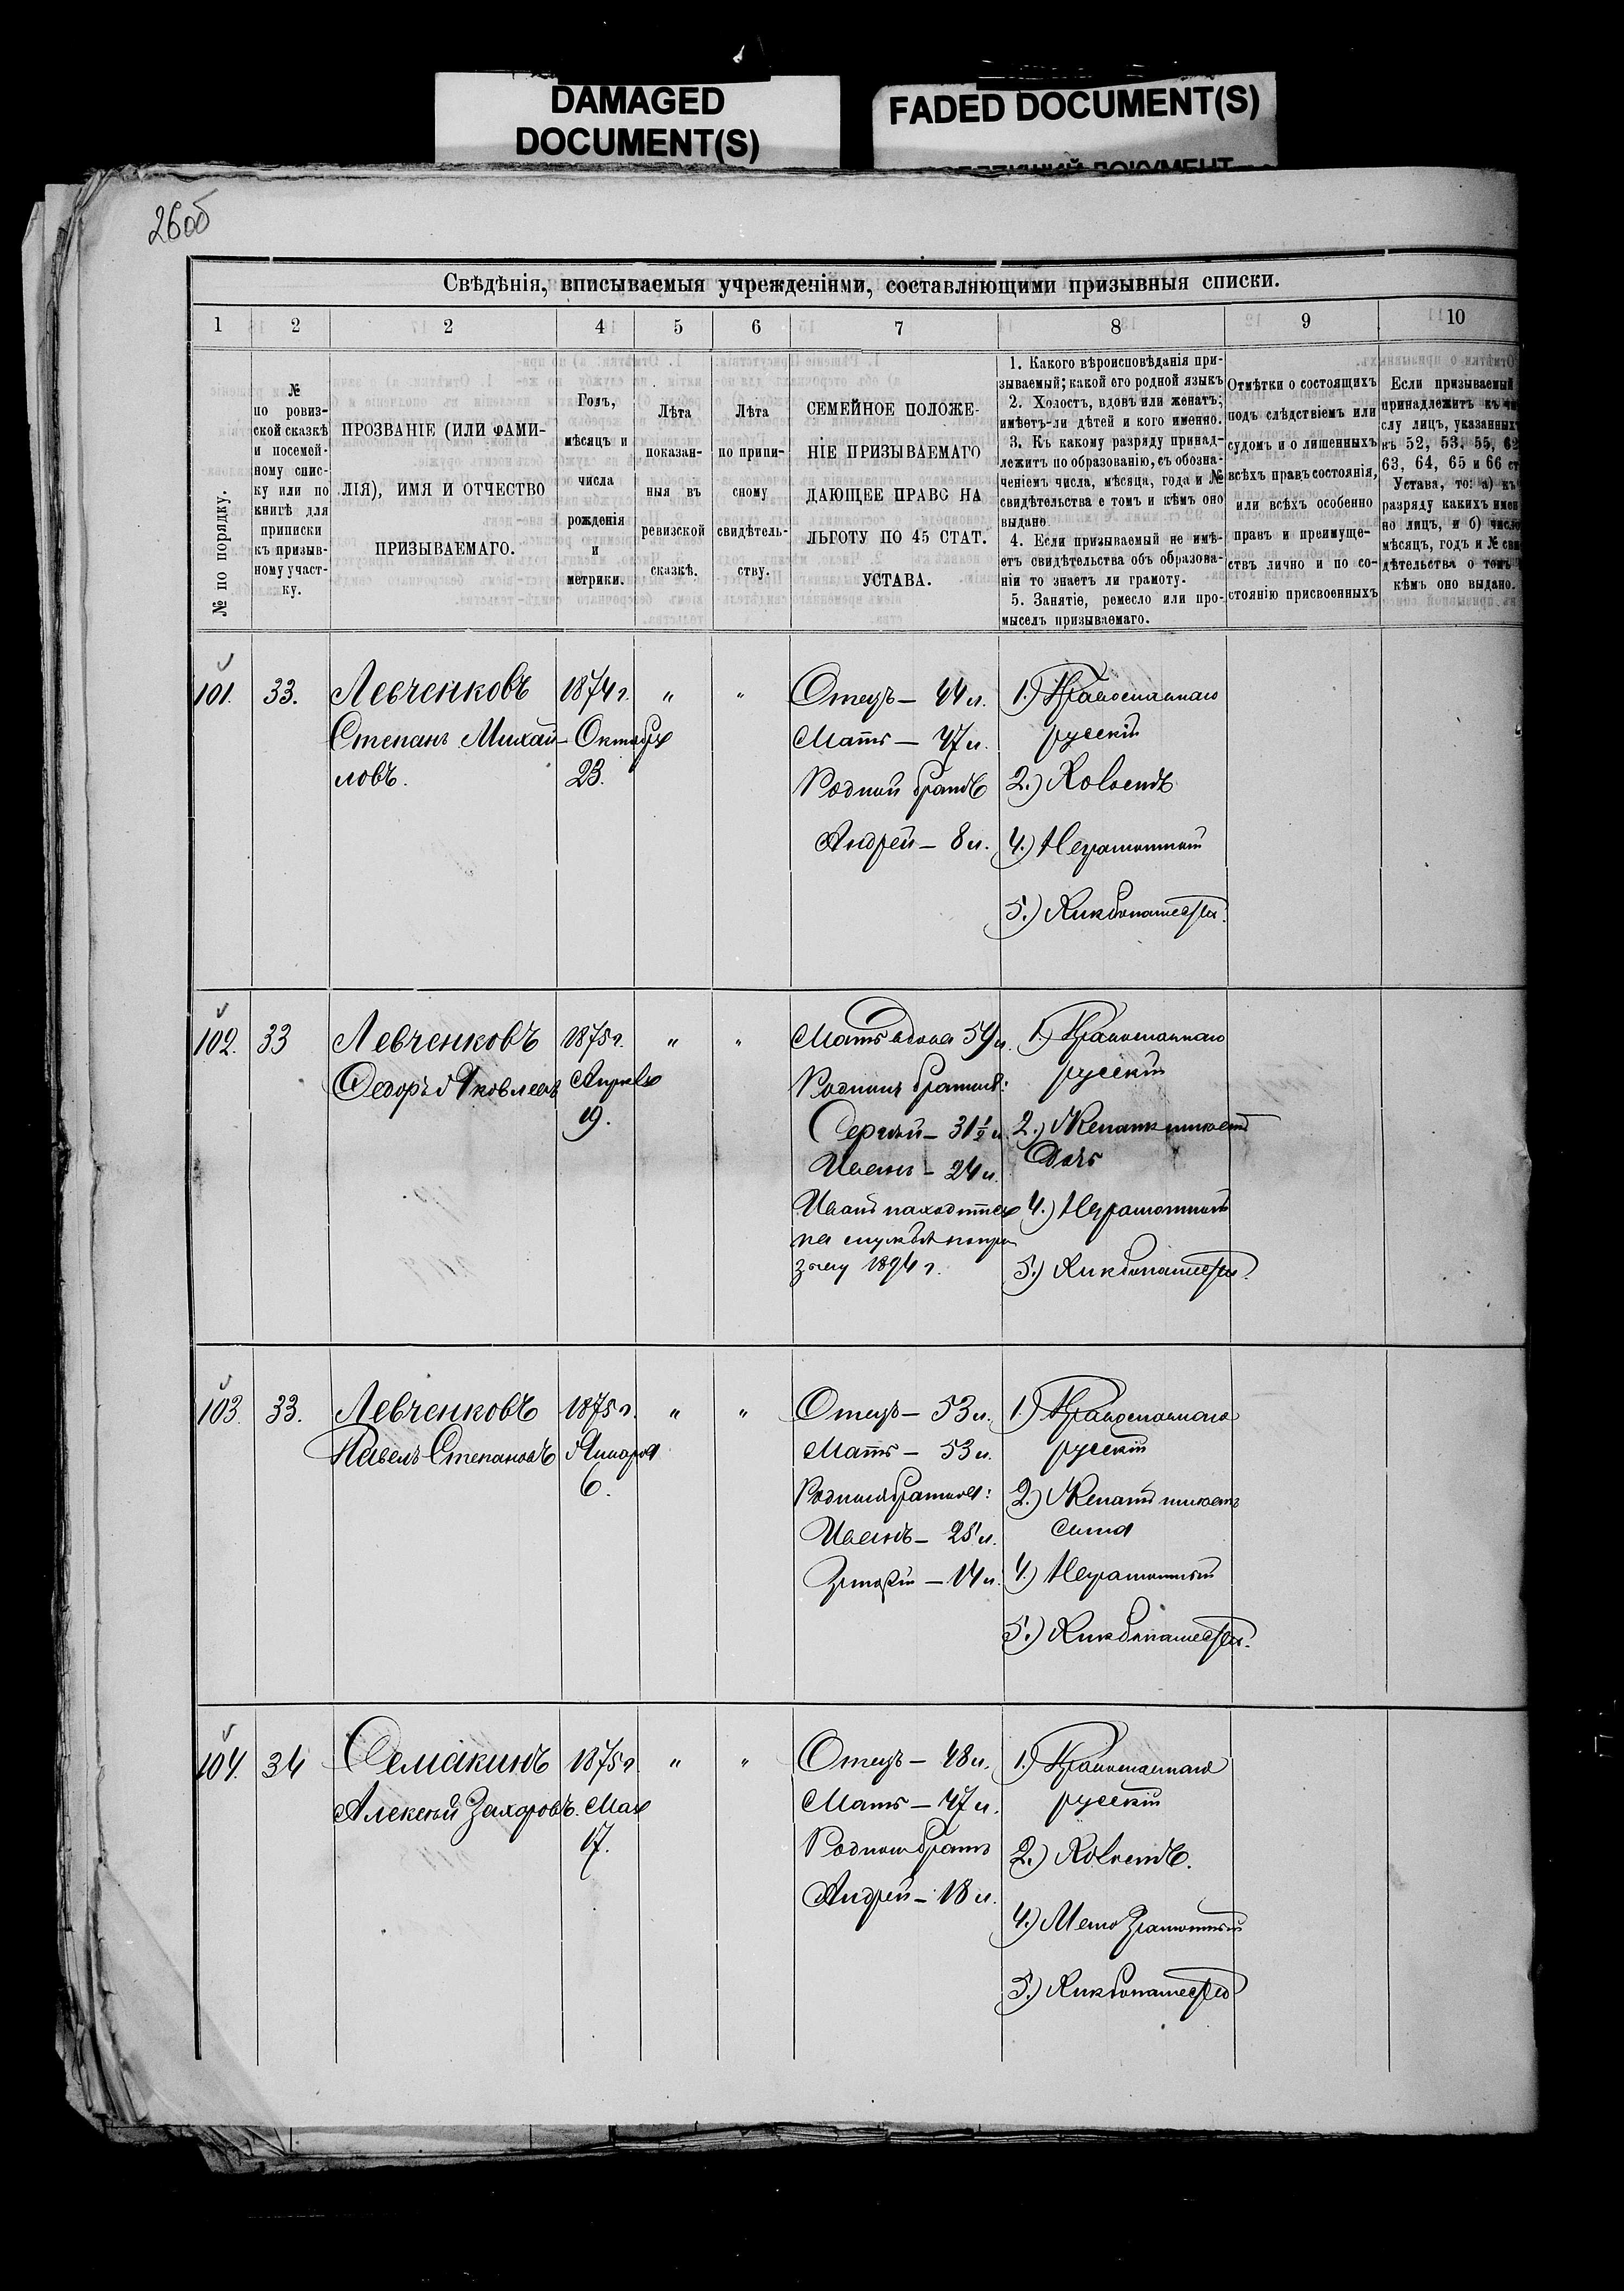 DAMAGED
DOCUMENT(S)
FADED DOCUMENT(S)
26об
Свѣдѣнія, вписываемыя учрежденіями, составляющими призывныя списки.
1 2 2 4 5 6 7 8 9 10
№ по порядку.
№
по ровиз-
ской сказкѣ
и посемей-
ному спис-
ку или по
книгѣ для
приписки
къ призыв-
ному участ-
ку.
ПРОЗВАНІЕ (ИЛИ ФАМИ-
ЛІЯ), ИМЯ И ОТЧЕСТВО
ПРИЗЫВАЕМАГО.
Годъ,
мѣсяцъ и
числа
рожденія
и
метрики.
Лѣта
показан-
ныя въ
ревизской
сказкѣ.
Лѣта
по припи-
сному
свидѣтель-
ству.
СЕМЕЙНОЕ ПОЛОЖЕ-
НІЕ ПРИЗЫВАЕМАГО
ДАЮЩЕЕ ПРАВО НА
ЛЬГОТУ ПО 45 СТАТ.
УСТАВА.
1. Какого вѣроисповѣданія при-
зываемый; какой его родной языкъ
2. Холостъ, вдовъ или женатъ;
имѣетъ-ли дѣтей и кого именно.
3. Къ какому разряду принад-
лежитъ по образованію, съ обозна-
ченіемъ числа, мѣсяца, года и №
свидѣтельства е томъ и кѣмъ оно
выдано
4. Если призываемый не имѣ-
етъ свидѣтельства объ образова-
ніи то знаетъ ли грамоту.
5. Занятіе, ремесло или про-
мыселъ призываемаго.
Отмѣтки о состоящихъ
подъ слѣдствіемъ или
судомъ и о лишенныхъ
всѣхъ правъ состоянія,
или всѣхъ особенно
правъ и преимуще-
ствъ лично и по со-
стоянію присвоенныхъ
Если призываемый
принадлежитъ къ
слу лицъ, указанныхъ
въ 52, 53, 55, 62
63, 64, 65 и 66 ст
Устава, то: а) къ
разряду какихъ имен
но лицъ, и б) число
мѣсяцъ, годъ и № сви
дѣтельства о томъ
кѣмъ оно выдано.
101. 33. Левченковъ 1874 г. " " Отецъ — 44 л. 1.) Православнаго
Степанъ Михай- Октября Мать — 47 л. русскій
ловъ. 23. Родной братъ 2.) Холостъ
Андрей — 8 л. 4.) Неграмотный
5.) Хлѣбопашество.
102. 33 Левченковъ 1875 г. " " Мать вдова 59 л. 1.) Православнаго
Федоръ Яковлевъ Апрѣля Родныя братья: русскій
19. Сергѣй — 31½ л. 2.) Женатъ имѣетъ
Иванъ — 24 л. дочь
Иванъ находится 4.) Неграмотный
на службѣ по при
зыву 1894 г. 5.) Хлѣбопашество.
103. 33. Левченковъ 1875 г. " " Отецъ — 53 л. 1.) Православнаго
Павелъ Степановъ Января Мать — 53 л. русскій
6. Родныя братья: 2.) Женатъ имѣетъ
Иванъ — 25 л. сына
— 14 л. 4.) Неграмотный
5.) Хлѣбопашество.
104. 34 Семакинъ 1875 г. " " Отецъ — 48 л. 1.) Православнаго
Алексѣй Захаровъ. Мая Мать — 47 л. русскій
17. Родной братъ 2.) Холостъ.
Андрей — 18 л.
4.) Мало грамотный
5.) Хлѣбопашество